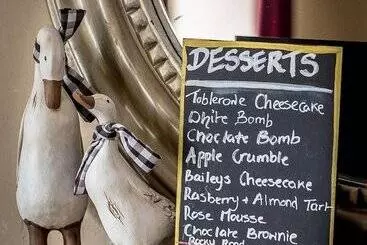 DESSERTS
Toblerone Cheesecake
White Bomb
Chocolate Bomb
Apple Crumble
Baileys Cheesecake
Rasberry + Almond Tart
Rose Mousse
Chocolate Brownie
Rocky Road